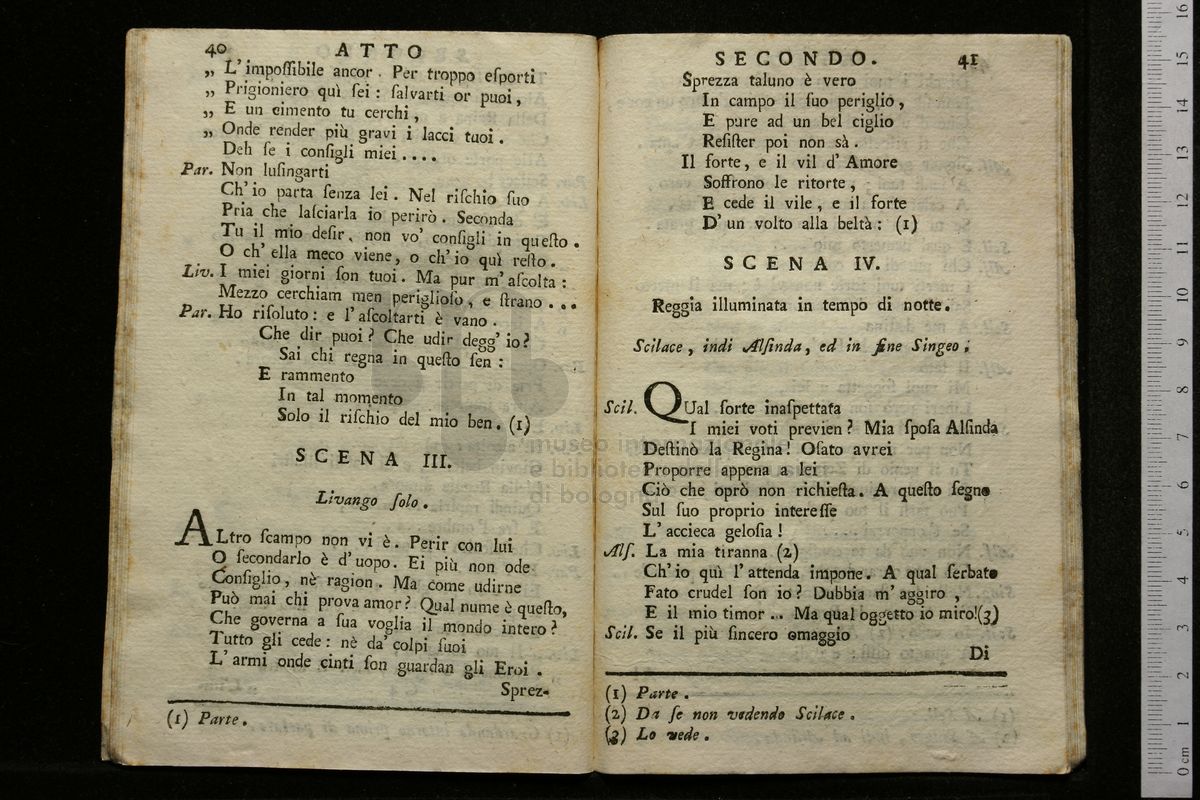 40 ATTO
„ L' impoſſibile ancor. Per troppo eſporti
„ Prigioniero quì ſei: ſalvarti or puoi,
„ E un cimento tu cerchi,
„ Onde render più gravi i lacci tuoi.
Deh ſe i conſigli miei....
Par. Non luſingarti
Ch' io parta ſenza lei. Nel riſchio ſuo
Pria che laſciarla io perirò. Seconda
Tu il mio deſir, non vo' conſigli in queſto.
O ch' ella meco viene, o ch' io quì reſto.
Liv. I miei giorni ſon tuoi. Ma pur m' aſcolta:
Mezzo cerchiam men periglioſo, e ſtrano...
Par. Ho riſoluto: e l' aſcoltarti è vano.
Che dir puoi? Che udir degg' io?
Sai chi regna in queſto ſen:
E rammento
In tal momento
Solo il riſchio del mio ben. (1)
SCENA III.
Livango ſolo.
ALtro ſcampo non vi è. Perir con lui
O ſecondarlo è d' uopo. Ei più non ode
Conſiglio, nè ragion. Ma come udirne
Può mai chi prova amor? Qual nume è queſto,
Che governa a ſua voglia il mondo intero?
Tutto gli cede: nè da' colpi ſuoi
L' armi onde cinti ſon guardan gli Eroi.
Sprez-
(1) Parte.
SECONDO. 41
Sprezza taluno è vero
In campo il ſuo periglio,
E pure ad un bel ciglio
Reſiſter poi non sà.
Il forte, e il vil d' Amore
Soffrono le ritorte,
E cede il vile, e il forte
D' un volto alla beltà: (1)
SCENA IV.
Reggia illuminata in tempo di notte.
Scilace, indi Alſinda, ed in fine Singeo.
Scil. QUal ſorte inaſpettata
I miei voti previen? Mia ſpoſa Alſinda
Deſtinò la Regina! Oſato avrei
Proporre appena a lei
Ciò che oprò non richieſta. A queſto ſegno
Sul ſuo proprio intereſſe
L' accieca geloſia!
Alſ. La mia tiranna (2)
Ch' io quì l' attenda impone. A qual ſerbato
Fato crudel ſon io? Dubbia m' aggiro,
E il mio timor .. Ma qual oggetto io miro!(3)
Scil. Se il più ſincero omaggio
Di
(1) Parte.
(2) Da ſe non vedendo Scilace.
(3) Lo vede.
museo internazionale
e biblioteca della
di bologna
0 cm 1 2 3 4 5 6 7 8 9 10 11 12 13 14 15 16